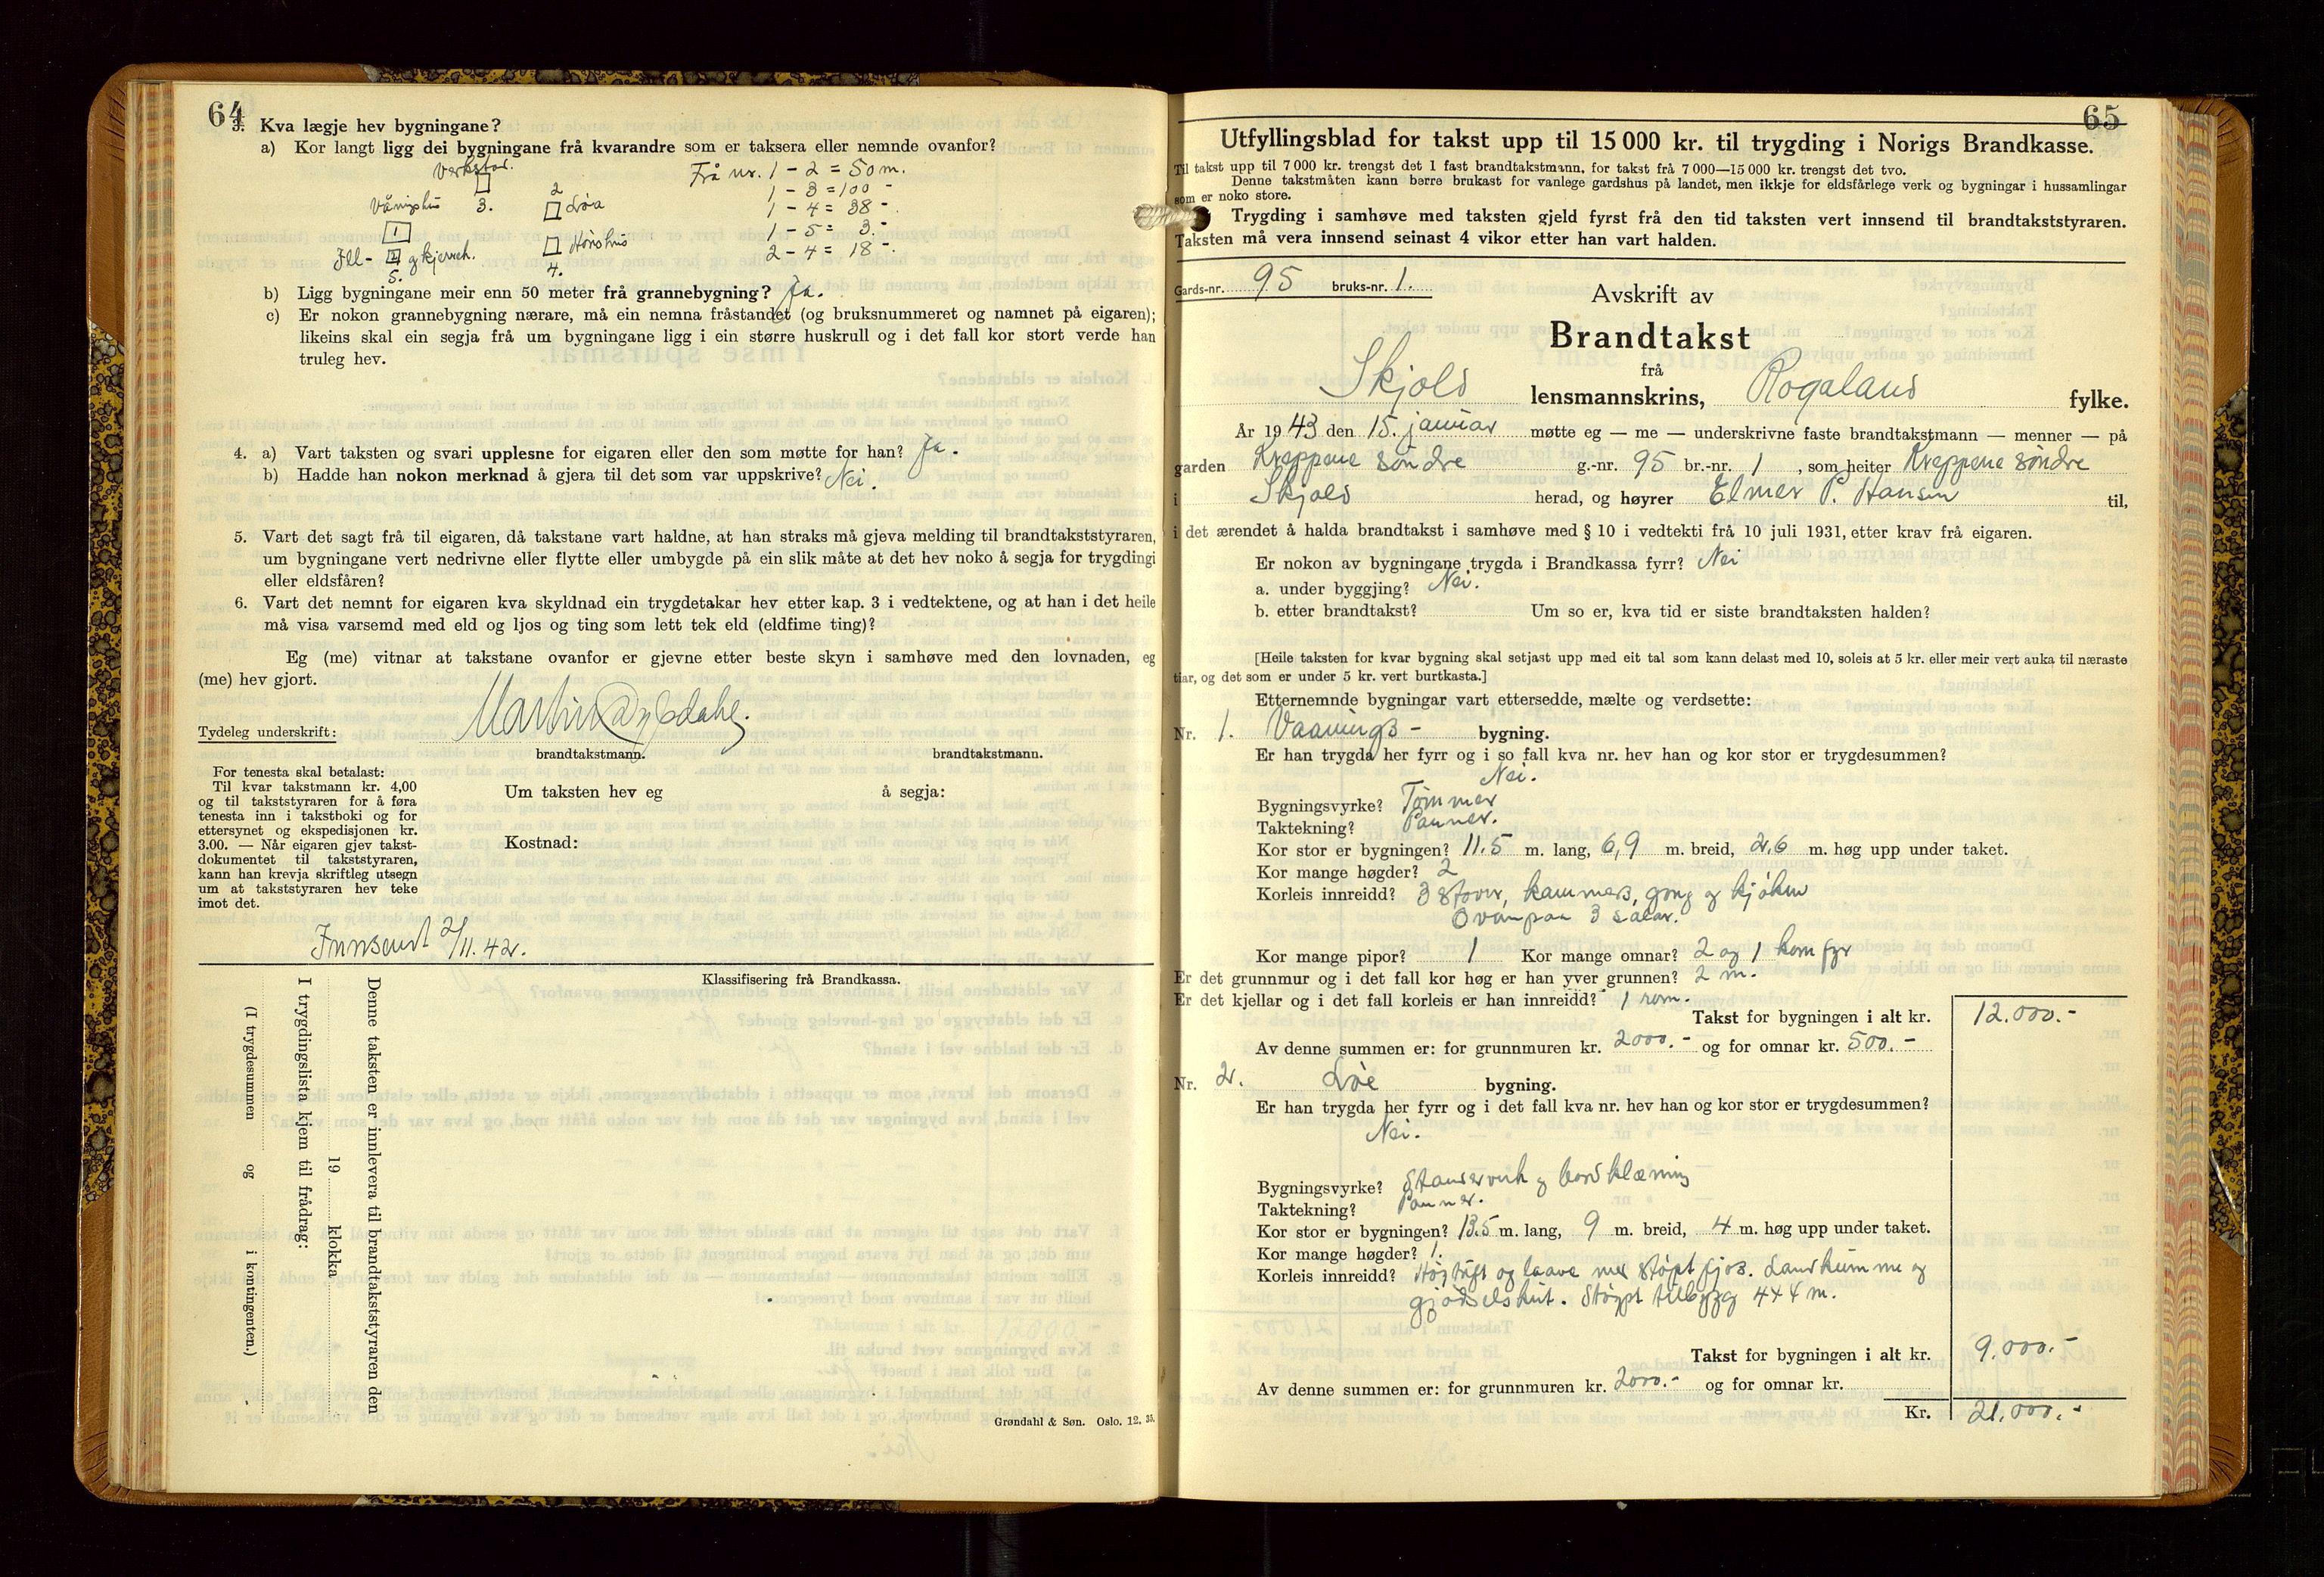 64
3. Kva lægje hev bygningane?
a) Kor langt ligg dei bygningane frå kvarandre som er taksera eller nemnde ovanfor?
Verkstad.
Frå nr. 1 - 2 = 50 m.
1 - 3 = 100 -
Våningshus 3.
2
Løa
1 - 4 = 38 -
1
1 - 5 = 3.
Hønshus
2 - 4 = 18 -
Ill- og kjerreh.
4.
5.
b) Ligg bygningane meir enn 50 meter frå grannebygning? Ja.
c) Er nokon grannebygning nærare, må ein nemna fråstandet (og bruksnummeret og namnet på eigaren);
likeins skal ein segja frå um bygningane ligg i ein større huskrull og i det fall kor stort verde han
truleg hev.
4. a) Vart taksten og svari upplesne for eigaren eller den som møtte for han? Ja.
b) Hadde han nokon merknad å gjera til det som var uppskrive? Nei.
5. Vart det sagt frå til eigaren, då takstane vart haldne, at han straks må gjeva melding til brandtakststyraren,
um bygningane vert nedrivne eller flytte eller umbygde på ein slik måte at det hev noko å segja for trygdingi
eller eldsfåren?
6. Vart det nemnt for eigaren kva skyldnad ein trygdetakar hev etter kap. 3 i vedtektene, og at han i det heile
må visa varsemd med eld og ljos og ting som lett tek eld (eldfime ting)?
Eg (me) vitnar at takstane ovanfor er gjevne etter beste skyn i samhøve med den lovnaden, eg
(me) hev gjort.
Tydeleg underskrift: Martin
brandtakstmann. brandtakstmann.
For tenesta skal betalast:
Til kvar takstmann kr. 4,00
og til takststyraren for å føra
tenesta inn i takstboki og for
ettersynet og ekspedisjonen kr.
3.00. — Når eigaren gjev takst-
dokumentet til takststyraren,
kann han krevja skriftleg utsegn
um at takststyraren hev teke
imot det.
Um taksten hev eg å segja:
Kostnad:
Innsendt 2/11. 42.
Klassifisering frå Brandkassa.
Denne taksten er innlevera til brandtakststyraren den
19 klokka
I trygdingslista kjem til frådrag:
(I trygdesummen og i kontingenten.)
Grøndahl & Søn. Oslo. 12. 35.
65
Utfyllingsblad for takst upp til 15 000 kr. til trygding i Norigs Brandkasse.
Til takst upp til 7 000 kr. trengst det 1 fast brandtakstmann, for takst frå 7 000—15 000 kr. trengst det tvo.
Denne takstmåten kann berre brukast for vanlege gardshus på landet, men ikkje for eldsfårlege verk og bygningar i hussamlingar
som er noko store.
Trygding i samhøve med taksten gjeld fyrst frå den tid taksten vert innsend til brandtakststyraren.
Taksten må vera innsend seinast 4 vikor etter han vart halden.
Gards-nr. 95 bruks-nr. 1.
Avskrift av
Brandtakst
frå
Skjold lensmannskrins, Rogaland fylke.
År 1943 den 15. januar møtte eg — me — underskrivne faste brandtakstmann — menner — på
garden Kreppene søndre g.-nr. 95 br.-nr. 1, som heiter Kreppene søndre
i Skjold herad, og høyrer Elmer P. Hansen til,
i det ærendet å halda brandtakst i samhøve med § 10 i vedtekti frå 10 juli 1931, etter krav frå eigaren.
Er nokon av bygningane trygda i Brandkassa fyrr? Nei
a. under byggjing? Nei.
b. etter brandtakst? Um so er, kva tid er siste brandtaksten halden?
[Heile taksten for kvar bygning skal setjast upp med eit tal som kann delast med 10, soleis at 5 kr. eller meir vert auka til næraste
tiar, og det som er under 5 kr. vert burtkasta.]
Etternemnde bygningar vart ettersedde, mælte og verdsette:
Nr. 1. Vaanings- bygning.
Er han trygda her fyrr og i so fall kva nr. hev han og kor stor er trygdesummen?
Nei.
Bygningsvyrke? Tømmer
Taktekning? Panner.
Kor stor er bygningen? 11.5 m. lang, 6,9 m. breid, 2.6 m. høg upp under taket.
Kor mange høgder? 2
Korleis innreidd? 3 stover, kammers, gong og kjøken
Ovanpaa 3 salar.
Kor mange pipor? 1 Kor mange omnar? 2 og 1 komfyr
Er det grunnmur og i det fall kor høg er han yver grunnen? 2 m.
Er det kjellar og i det fall korleis er han innreidd? 1 rom.
Takst for bygningen i alt kr. 12.000.-
Av denne summen er: for grunnmuren kr. 2000.- og for omnar kr. 500.-
Nr. 2. Løe bygning.
Er han trygda her fyrr og i det fall kva nr. hev han og kor stor er trygdesummen?
Nei.
Bygningsvyrke? Standerverk og bordklæning
Taktekning? Panner.
Kor stor er bygningen? 13.5 m. lang, 9 m. breid, 4 m. høg upp under taket.
Kor mange høgder? 1.
Korleis innreidd? og laave med støpt fjos. Landkumme og
gjødselshut. Støypt tilbygg 4x4 m.
Takst for bygningen i alt kr. 9.000.-
Av denne summen er: for grunnmuren kr. 2000.- og for omnar kr.
Kr. 21.000.-